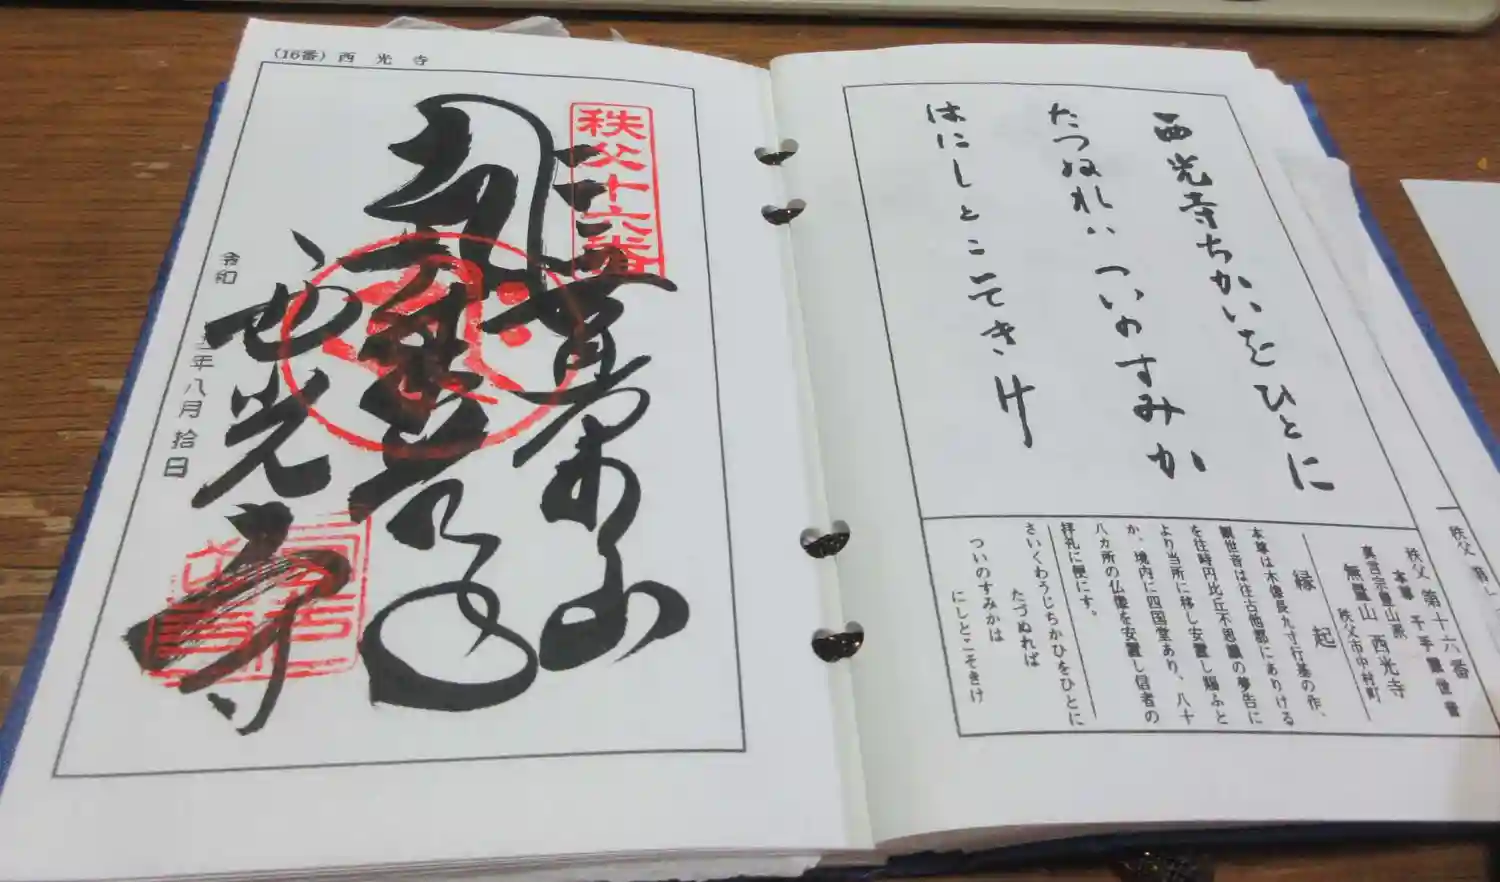 西光寺ちかいをひとに
たつぬれハついのすみか
はにしとこそきけ
秩父第十六番
本尊 千手観世音
真言宗豊山派
無量山 西光寺
秩父市中村町
縁起
本尊は木像長九寸行基の作、
観世音は往古他郡にありける
を往時円比丘不思議の夢告に
より当所に移し安置し賜ふと
か、境内に四国堂あり、八十
八カ所の仏像を安置し信者の
拝礼に便にす。
さいくわうじちかひをひとに
たづぬれば
ついのすみかは
にしとこそきけ
(16番) 西光寺
秩父十六番
無量山
西光寺
令和 年八月拾日
秩父